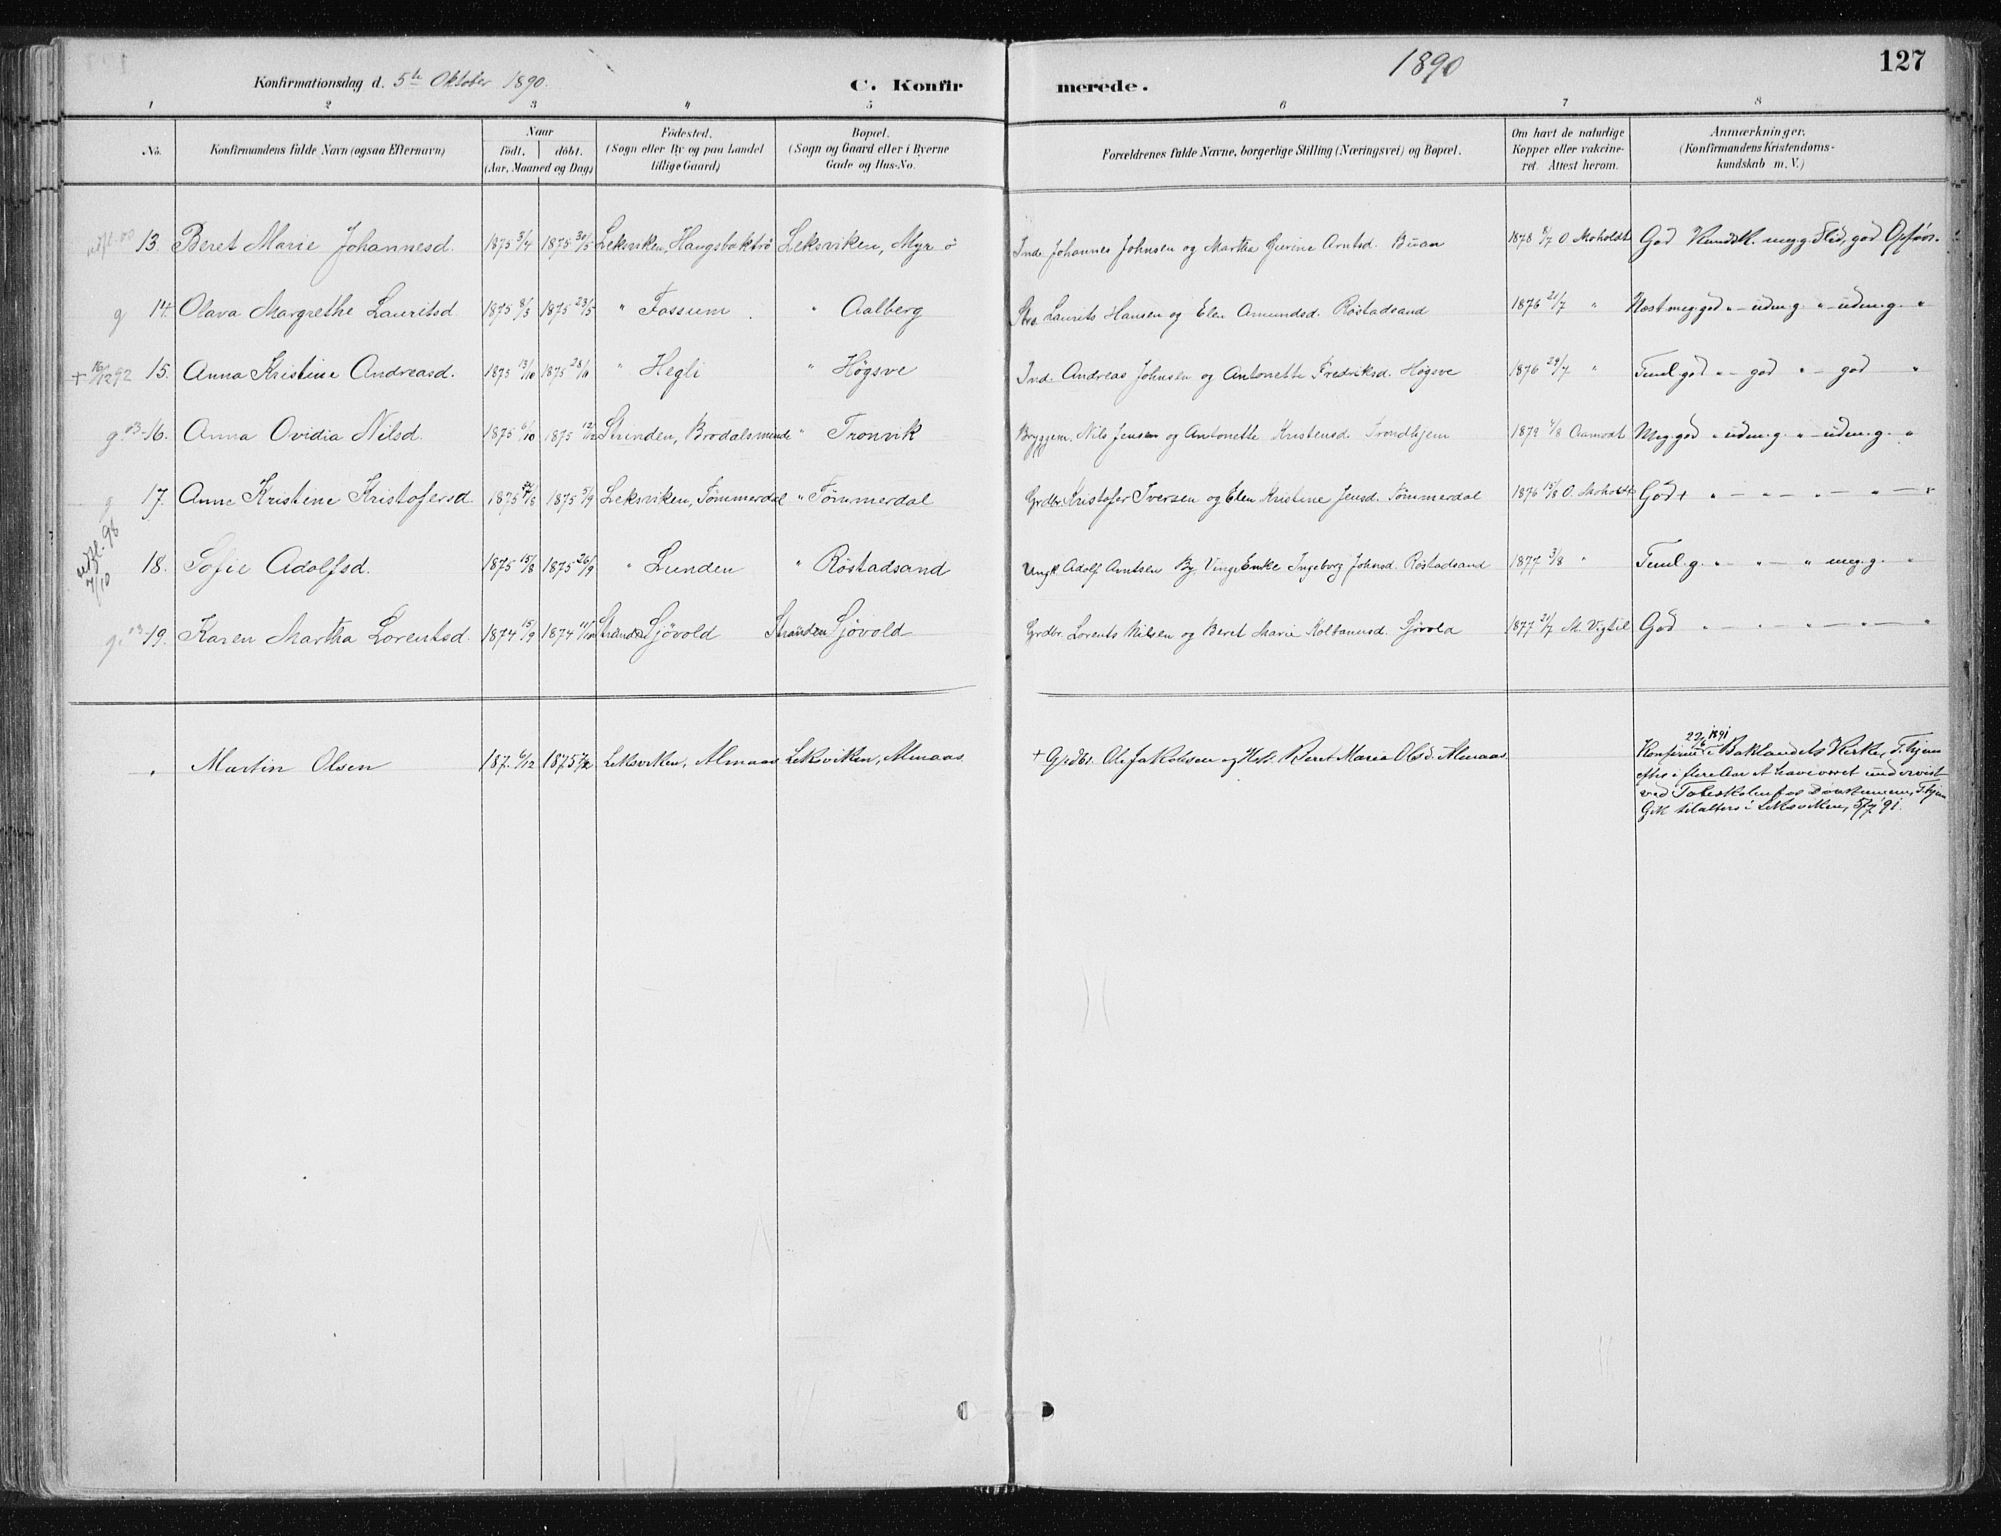 127
1890
Konfirmationsdag d. 5te Oktober 1890.
C. Konfir
merede.
1 2 3 " 5 6 7 8
No.
Konfirmandens fulde Navn (ogsaa Efternavn)
Naar
födt. döbt.
(Aar, Maaned og Dag)
Födested.
(Sogn eller By og paa Landet
tillige Gaard)
Bopæl.
(Sogn og Gaard eller i Byerne
Gade og Hus-No.
Forældrenes fulde Navne, borgerlige Stilling (Næringsvei) og Bopæl.
Om havt de naturlige
Kopper eller vakcine-
ret. Attest herom.
Anmærkninger.
(Konfirmandens Kristendoms-
kundskab m. V.)
13. Beret Marie Johannesd. 1875 3/4 1875 30/5 Leksviken, Leksviken, Myr Ind. Johannes Johnsen og Martha Arntsd. Buan 1878 8/7 O. Moholdt God Kundsk. meg g. Flid, god Opførs.
g 14. Olava Margrethe Lauritsd 1875 8/3 1875 23/5 " Fossum " Aalberg Laurits Hansen og Elen Amundsd. Røstadsand 1876 21/7 " Næst meg. god " - udm. g. " - udm. g. "
+ 16/12 92 15. Anna Kristine Andreasd. 1875 13/10 1875 " Hegli " Høgsve Ind. Andreas Johnsen og Antonette Fredriksd. Høgsve 1876 29/7 " Teml. god " - god " - god "
g. 03 16. Anna Ovidia Nilsd. 1875 6/10 1875 12/12 Strinden, " Tronvik Bryggem. Nils Jensen og Antonette Kristensd. Trondhjem 1879 Aamodt Meg. god " udm. g. " - udm. g. "
g 17. Anne Kristine Kristofersd. 1875 1875 5/9 Leksviken, Tømmerdal " Tømmerdal Grdbr. Kristofer Iversen og Elen Kristine Jensd. Tømmerdal 1876 15/8 O. Moholdt God + " - " - " - " - "
udfl. 98 7/10 18. Sofie Adolfsd. 1875 15/8 1875 26/9 " Lunden " Røstadsand Ungk. Adolf Arntsen By. Vinge Enke Ingeborg Johnsd. Røstadsand 1877 3/8 " Teml. g. " - " - " meg. g. "
g. 03 19. Karen Martha Lorentsd. 1874 15/9 1874 Stranden Sjøvold Stranden Sjøvold Grdbr. Lorents Nilsen og Beret Marie Kolbansd. Sjøvold 1877 21/7 M. Vigtil God " - " - " - " - "
" Martin Olsen 187. 6/12 1875 Leksviken, Almaas Leksviken, Almaas + Grdbr. Ole Jakobsen og Beret Maria Olsd. Almaas
1891
Konfirm. i Baklandets Kirke, T.hjem
efter i flere Aar at have været undervist
ved Taleskolen for Døvstumme, T.hjem
Gik tilalters i Leksviken, 5/7 91.